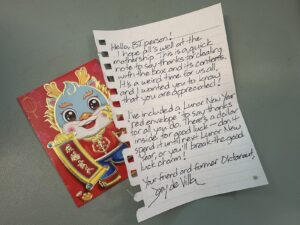 Hello, BI person!
I hope all's well at the
mothership. This is a quick
note to say thanks for dealing
with the box and its contents.
It's a weird time for us all,
and I wanted you to know
that you are appreciated!
I've included a Lunar New Year
red envelope to say thanks
for all you do. There's a dollar
inside for good luck – don't
spend it until next Lunar New
Year, or you'll break the good
luck charm!
Your friend and former Octonaut,
de Villa